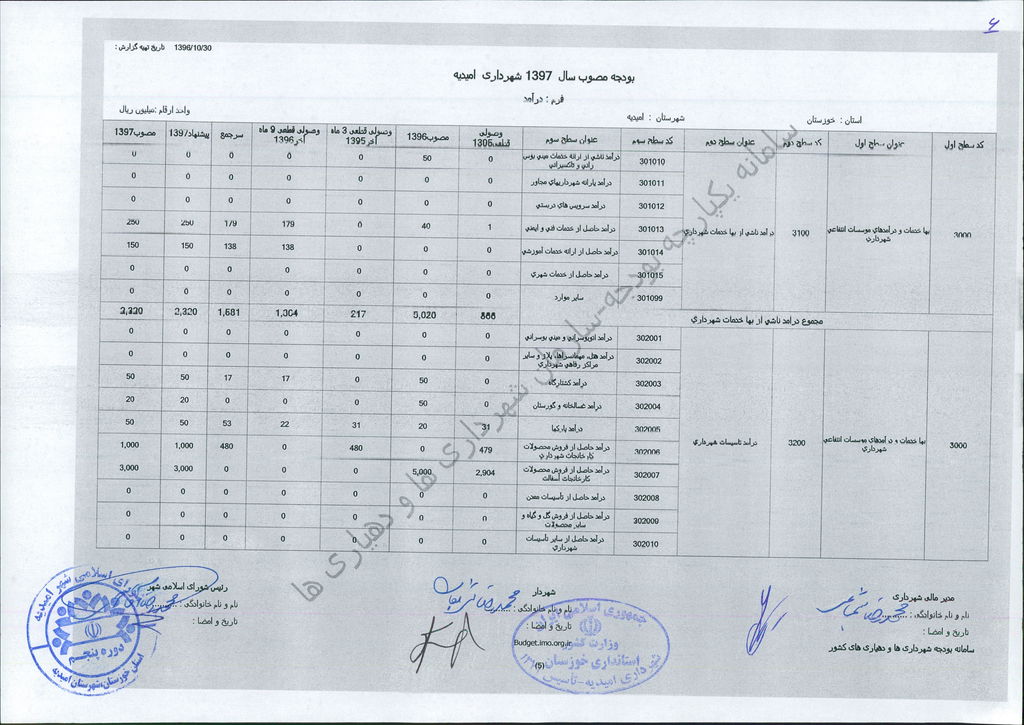 ۶
تاریخ تهیه گزارش : 1396/10/30
بودجه مصوب سال 1397 شهرداری امیدیه
فرم : درآمد
واحد ارقام :میلیون ریال
استان : خوزستان شهرستان : امیدیه
کد سطح اول عنوان سطح اول کد سطح دوم عنوان سطح دوم کد سطح سوم عنوان سطح سوم وصولی قطعی1395 مصوب1396 وصولی قطعی 3 ماه آخر1395 وصولی قطعی 9 ماه آخر1396 سرجمع پیشنهاد1397 مصوب1397
3000 بها خدمات و درآمدهای موسسات انتفاعی شهرداری 3100 درآمد ناشی از بها خدمات شهرداری
301010 درآمد ناشی از ارائه خدمات مینی بوس رانی و تاکسیرانی 0 50 0 0 0 0 0
301011 درآمد یارانه شهرداریهای مجاور 0 0 0 0 0 0 0
301012 درآمد سرویس های دربستی 0 0 0 0 0 0 0
301013 درآمد حاصل از خدمات فنی و ایمنی 1 40 0 179 179 250 250
301014 درآمد حاصل از ارائه خدمات آموزشی 0 0 0 138 138 150 150
301015 درآمد حاصل از خدمات شهری 0 0 0 0 0 0 0
301099 سایر موارد 0 0 0 0 0 0 0
مجموع درآمد ناشی از بها خدمات شهرداری 217 2,320
3000 بها خدمات و درآمدهای موسسات انتفاعی شهرداری 3200 درآمد تاسیسات شهرداری
302001 درآمد اتوبوسرانی و مینی بوسرانی 0 0 0 0 0 0 0
302002 درآمد هتل، مهمانسراها، پلاژ و سایر مراکز رفاهی شهرداری 0 0 0 0 0 0 0
302003 درآمد کشتارگاه 0 50 0 17 17 50 50
302004 درآمد غسالخانه و گورستان 0 50 0 0 0 20 20
302005 درآمد پارکها 31 20 31 22 53 50 50
302006 درآمد حاصل از فروش محصولات کارخانجات شهرداری 479 0 480 0 480 1,000 1,000
302007 درآمد حاصل از فروش محصولات کارخانجات آسفالت 2,904 5,000 0 0 0 3,000 3,000
302008 درآمد حاصل از تأسیسات معدن 0 0 0 0 0 0 0
302009 درآمد حاصل از فروش گل و گیاه و سایر محصولات 0 0 0 0 0 0 0
302010 درآمد حاصل از سایر تأسیسات شهرداری 0 0 0 0 0 0 0
سامانه یکپارچه بودجه-سازمان شهرداری ها و دهیاری ها
مدیر مالی شهرداری
نام و نام خانوادگی :
تاریخ و امضا :
سامانه بودجه شهرداری ها و دهیاری های کشور
شهردار
نام و نام خانوادگی :
تاریخ و امضا :
Budget.imo.org.ir
(5)
رئیس شورای اسلامی شهر
نام و نام خانوادگی :
تاریخ و امضا :
جمهوری اسلامی ایران
وزارت کشور
استانداری خوزستان
شهرداری امیدیه-تأسیس
شورای اسلامی شهر امیدیه
دوره پنجم
استان خوزستان،شهرستان امیدیه